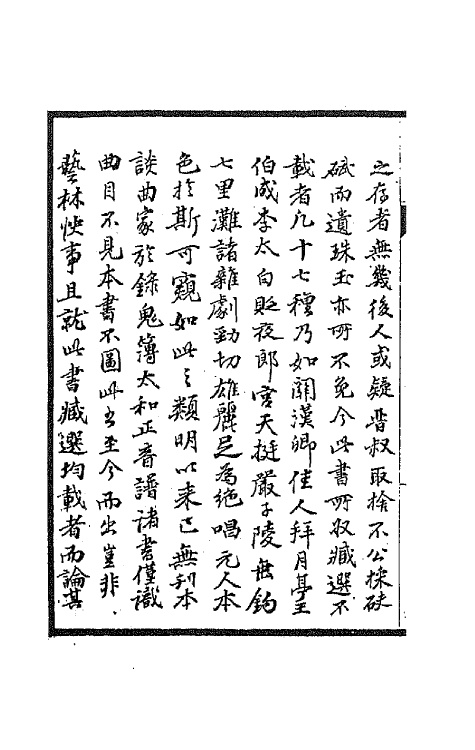 之存者無幾後人或疑晉叔取捨不公採砆
碔而遺珠玉亦所不免今此書所收臧選不
載者凡十七種乃如關漢卿佳人拜月亭王
伯成李太白貶夜郎宮天挺嚴子陵垂釣
七里灘諸雜劇勁切雄麗足為絕唱元人本
色於斯可窺如此之類明以來已無刋本
談曲家於錄鬼簿太和正音譜諸書僅識
曲目不見本書不圖此書至今而出豈非
藝林快事且就此書臧選均載者而論其